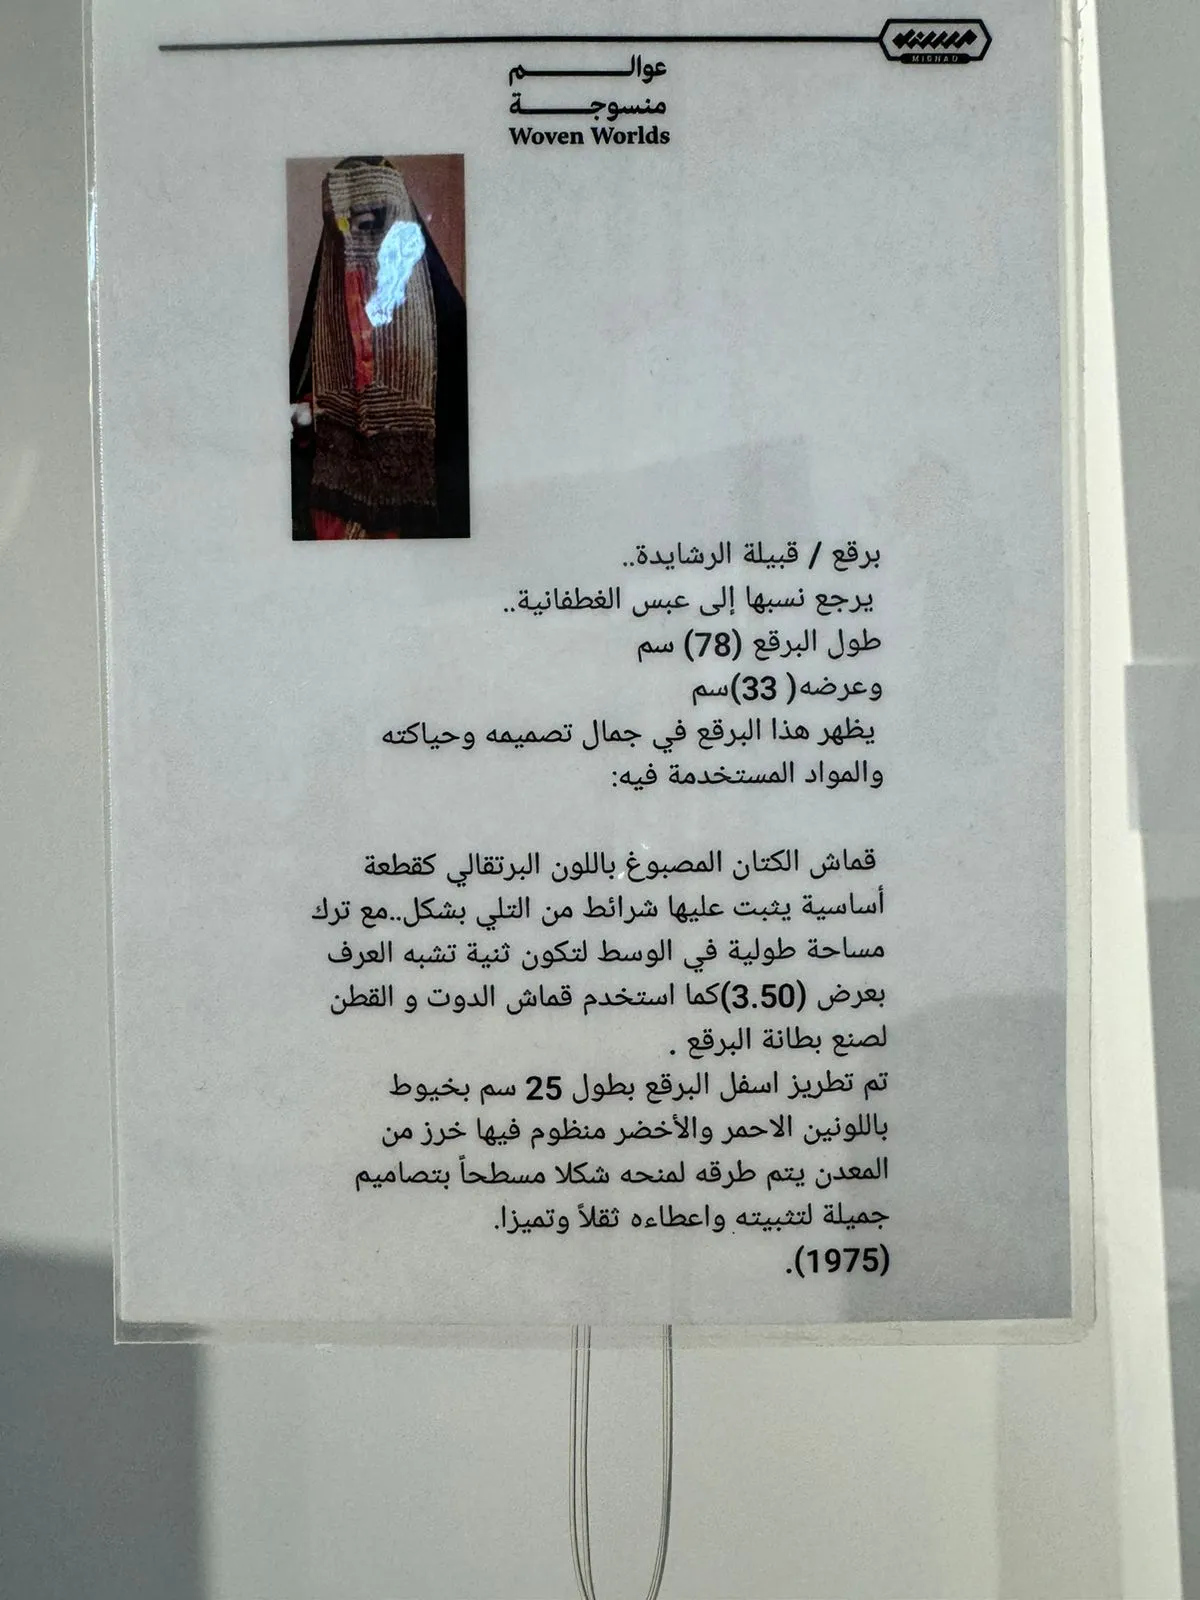 MIGNAD
عوالم
منسوجة
Woven Worlds
برقع / قبيلة الرشايدة..
يرجع نسبها إلى عبس الغطفانية..
طول البرقع (78) سم
وعرضه( 33)سم
يظهر هذا البرقع في جمال تصميمه وحياكته
والمواد المستخدمة فيه:
قماش الكتان المصبوغ باللون البرتقالي كقطعة
أساسية يثبت عليها شرائط من التلي بشكل..مع ترك
مساحة طولية في الوسط لتكون ثنية تشبه العرف
بعرض (3.50)كما استخدم قماش الدوت و القطن
لصنع بطانة البرقع .
تم تطريز اسفل البرقع بطول 25 سم بخيوط
باللونين الاحمر والأخضر منظوم فيها خرز من
المعدن يتم طرقه لمنحه شكلا مسطحاً بتصاميم
جميلة لتثبيته واعطاءه ثقلاً وتميزا.
(1975).